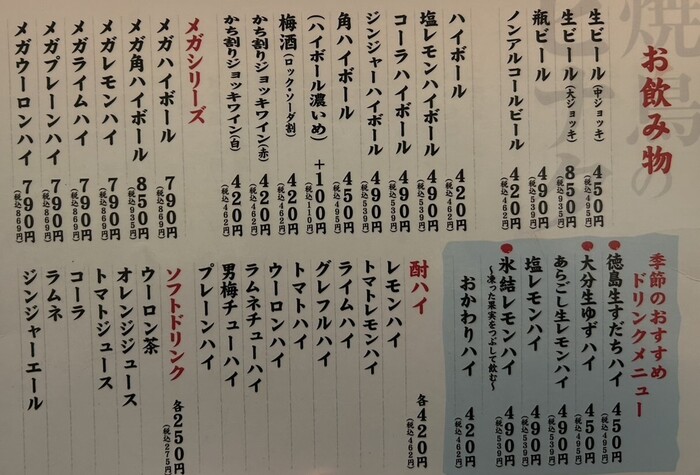 焼鳥の
ヒナタ
お飲み物
生ビール(中ジョッキ) 450円(税込495円)
生ビール(大ジョッキ) 850円(税込935円)
瓶ビール 490円(税込539円)
ノンアルコールビール 420円(税込462円)
ハイボール 420円(税込462円)
塩レモンハイボール 490円(税込539円)
コーラハイボール 490円(税込539円)
ジンジャーハイボール 490円(税込539円)
角ハイボール 450円(税込495円)
(ハイボール濃いめ) +100円(税込110円)
梅酒(ロック・ソーダ割) 420円(税込462円)
かち割りジョッキワイン(赤) 420円(税込462円)
かち割りジョッキワイン(白) 420円(税込462円)
メガシリーズ
メガハイボール 790円(税込869円)
メガ角ハイボール 850円(税込935円)
メガレモンハイ 790円(税込869円)
メガライムハイ 790円(税込869円)
メガプレーンハイ 790円(税込869円)
メガウーロンハイ 790円(税込869円)
季節のおすすめ
ドリンクメニュー
徳島生すだちハイ 450円(税込495円)
大分生ゆずハイ 450円(税込495円)
あらごし生レモンハイ 490円(税込539円)
塩レモンハイ 490円(税込539円)
氷結レモンハイ 490円(税込539円)
～凍った果実をつぶして飲む～
おかわりハイ 420円(税込462円)
酎ハイ 各420円(税込462円)
レモンハイ
トマトレモンハイ
ライムハイ
グレフルハイ
トマトハイ
ウーロンハイ
ラムネチューハイ
男梅チューハイ
プレーンハイ
ソフトドリンク 各250円(税込275円)
ウーロン茶
オレンジジュース
トマトジュース
コーラ
ラムネ
ジンジャーエール